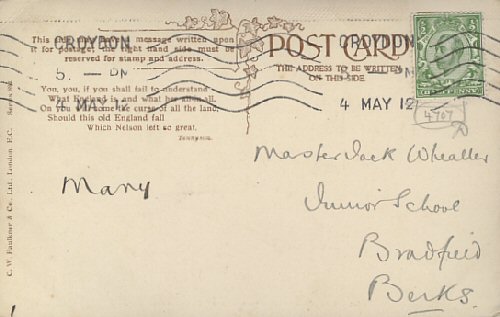 This space may have a message written upon
it for postage; the right hand side must be
reserved for stamp and address.
CROYDON
5. — PM
4 MAY 12
You, you, if you shall fail to understand
What England is, and what her all-in-all,
On you will come the curse of all the land,
Should this old England fall
Which Nelson left so great.
Tennyson.
Many
C. W. Faulkner & Co., Ltd., London, E.C.
POST CARD
THE ADDRESS TO BE WRITTEN
ON THIS SIDE.
CROYDON
PM
4 MAY 12
4707
Master Jack Wheatley
Junior School
Bradfield
Berks.